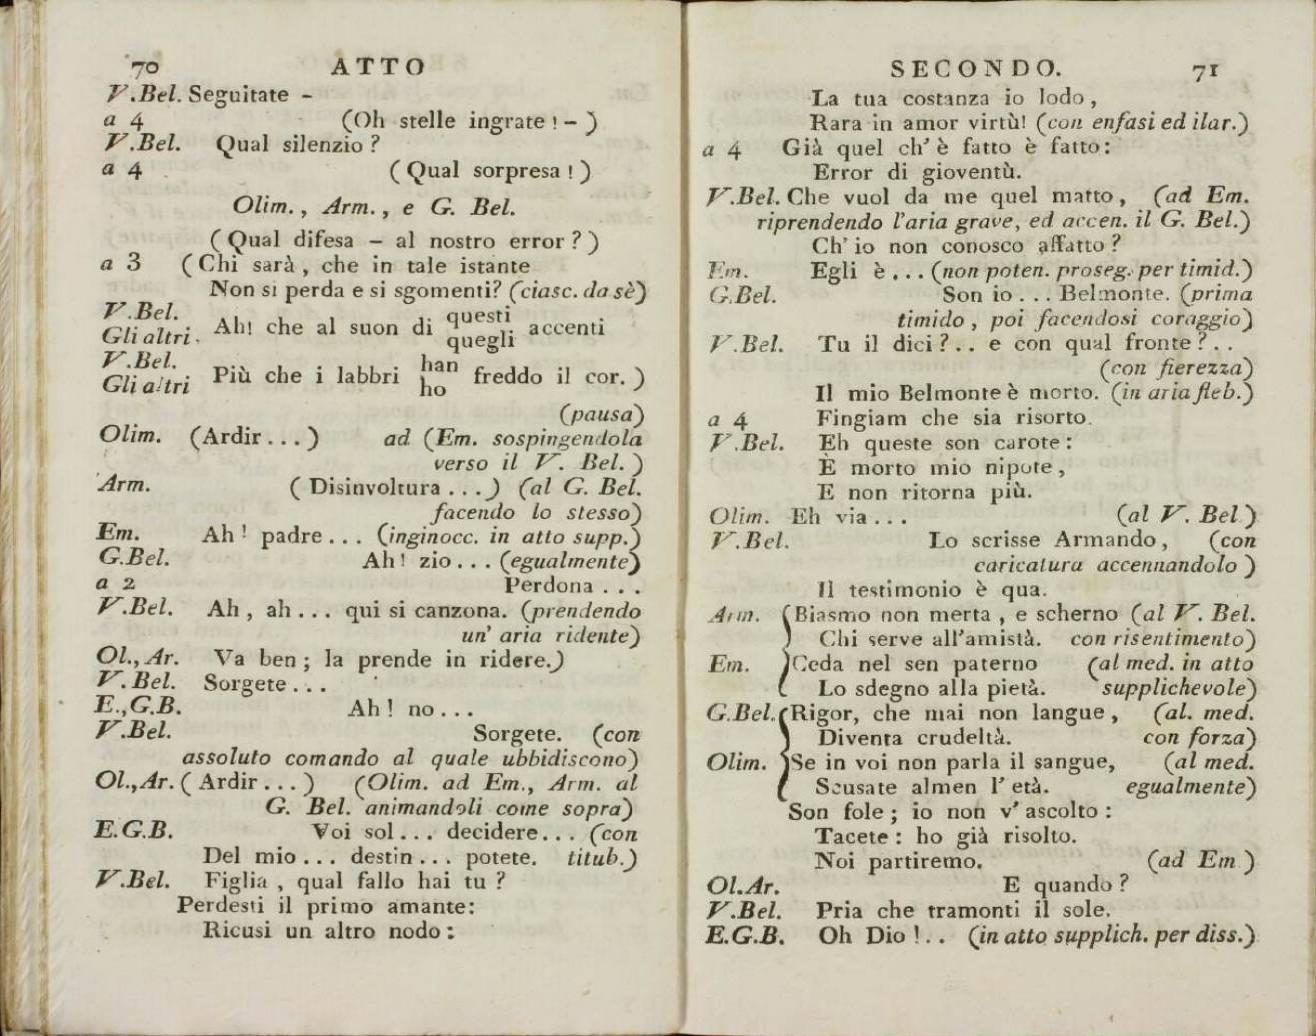 70 ATTO
V.Bel. Seguitate -
a 4 (Oh stelle ingrate ! - )
V.Bel. Qual silenzio ?
a 4 ( Qual sorpresa ! )
Olim. , Arm. , e G. Bel.
( Qual difesa - al nostro error ? )
a 3 ( Chi sarà , che in tale istante
Non si perda e si sgomenti? (ciasc. da sè)
V.Bel. questi
Gli altri. Ah! che al suon di quegli accenti
V.Bel. han
Gli altri Più che i labbri ho freddo il cor. )
(pausa)
Olim. (Ardir . . . ) ad (Em. sospingendola
verso il V. Bel. )
Arm. ( Disinvoltura . . .) (al G. Bel.
facendo lo stesso)
Em. Ah ! padre . . . (inginocc. in atto supp.)
G.Bel. Ah ! zio . . . (egualmente)
a 2 Perdona . . .
V.Bel. Ah , ah . . . qui si canzona. (prendendo
un' aria ridente)
Ol., Ar. Va ben ; la prende in ridere.)
V. Bel. Sorgete . . .
E.,G.B. Ah ! no . . .
V.Bel. Sorgete. (con
assoluto comando al quale ubbidiscono)
Ol.,Ar. ( Ardir . . . ) (Olim. ad Em., Arm. al
G. Bel. animandoli come sopra)
E.G.B. Voi sol . . . decidere . . . (con
Del mio . . . destin . . . potete. titub.)
V.Bel. Figlia , qual fallo hai tu ?
Perdesti il primo amante:
Ricusi un altro nodo :
SECONDO. 71
La tua costanza io lodo ,
Rara in amor virtù! (con enfasi ed ilar.)
a 4 Già quel ch' è fatto è fatto:
Error di gioventù.
V.Bel. Che vuol da me quel matto , (ad Em.
riprendendo l'aria grave, ed accen. il G. Bel.)
Ch' io non conosco affatto ?
Em. Egli è . . . (non poten. proseg. per timid.)
G.Bel. Son io . . . Belmonte. (prima
timido , poi facendosi coraggio)
V.Bel. Tu il dici ? . . e con qual fronte ? . .
(con fierezza)
Il mio Belmonte è morto. (in aria fleb.)
a 4 Fingiam che sia risorto.
V.Bel. Eh queste son carote :
È morto mio nipote ,
E non ritorna più.
Olim. Eh via . . . (al V. Bel.)
V.Bel. Lo scrisse Armando , (con
caricatura accennandolo )
Il testimonio è qua.
Arm. (Biasmo non merta , e scherno (al V. Bel.
Chi serve all'amistà. con risentimento)
Em. Ceda nel sen paterno (al med. in atto
Lo sdegno alla pietà. supplichevole)
G.Bel. (Rigor, che mai non langue , (al. med.
Diventa crudeltà. con forza)
Olim. Se in voi non parla il sangue, (al med.
Scusate almen l' età. egualmente)
Son fole ; io non v' ascolto :
Tacete : ho già risolto.
Noi partiremo. (ad Em )
Ol.Ar. E quando ?
V.Bel. Pria che tramonti il sole.
E.G.B. Oh Dio ! . . (in atto supplich. per diss.)